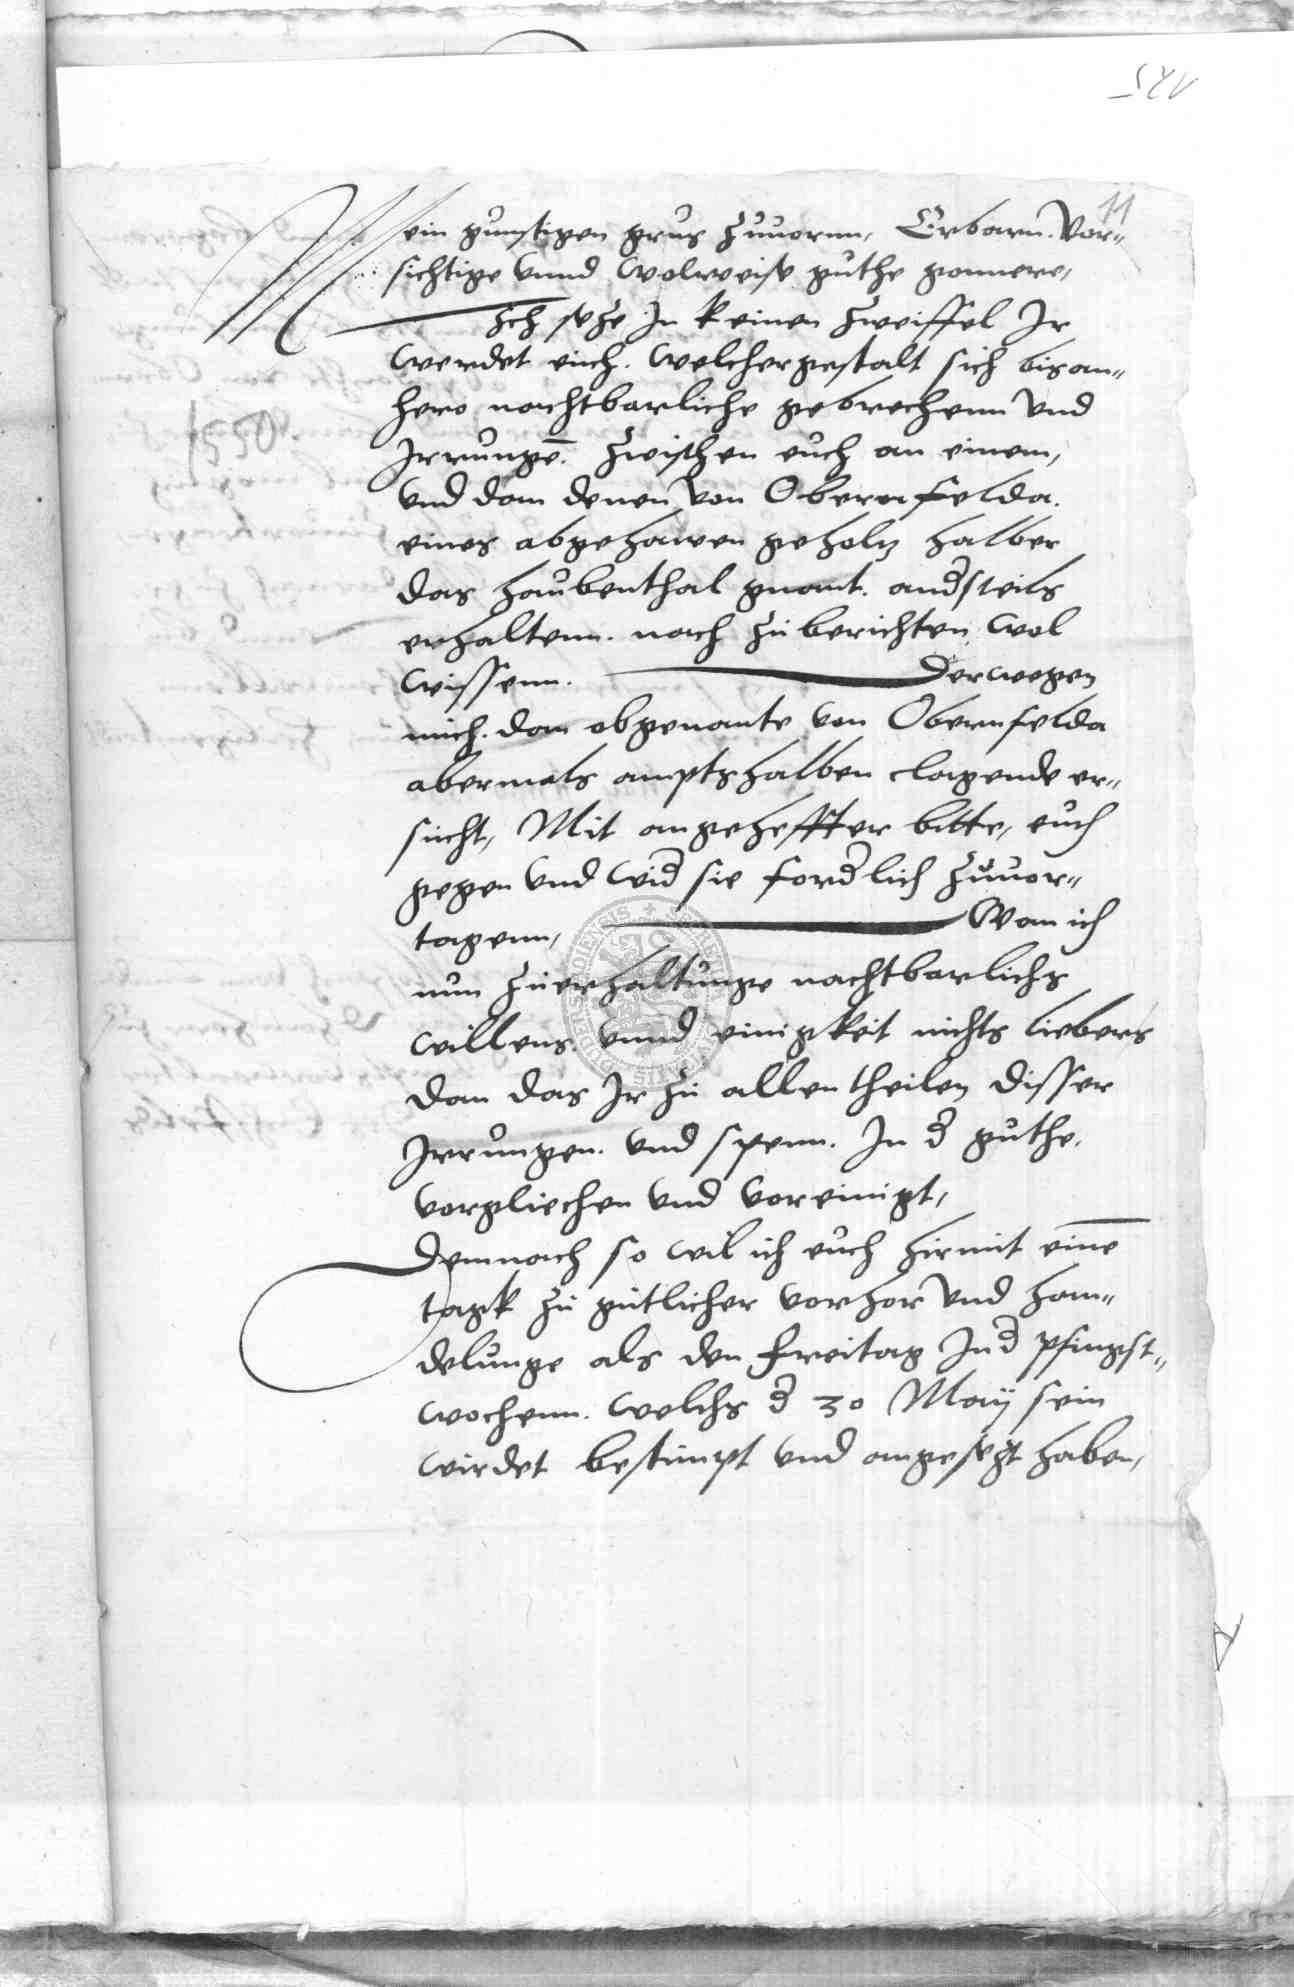 11
Mein gunstigen grus zuuornn, Erbarn. Vor„
sichtige vnnd wolweise guthe gonnere,
Ich seze In keinen zweiffel Ir
werdet euch. welchergestalt sich bisan„
hero nachtbarliche gebrechenn vnd
Irrunge. zwischen euch an einem,
vnd dan denen von Obernfelda.
eines abgehawen geholz halber
das Haubenthal gnant. andsteils
erhaltenn. nach zu berichten wol
wissenn. Derwegen
mich. dan obgenante von Obernfelda
abermals amptshalben clagende er„
sucht, Mit angeheffter bitte, euch
gegen vnd wid sie fordlich zuuor„
tagenn, Wan ich
nun zuerhaltunge nachtbarlichs
willens. vnnd einigkeit nichts liebers
dan das Ir zu allentheilen disser
Irrungen. vnd spenn. In d guthe.
vorgliechen vnd voreinigt,
Demnach so wil ich euch hirmit eine
tagk zu gutlicher vorhor vnd han„
delunge als den Freitag Ind pfingst„
wochenn. welchs d 30 Maij sein
wirdet bestimpt vnd angesezt haben,